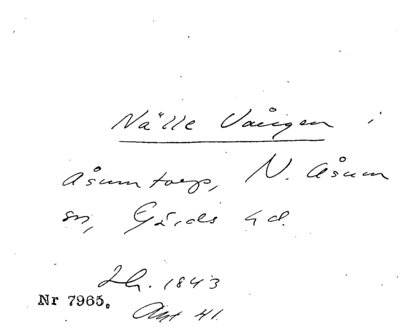 Nälle Vången i
Åsumtorp, N. Åsum
sn, Gärds hd.
Lh. 1843
Nr 7965.
Akt 41.